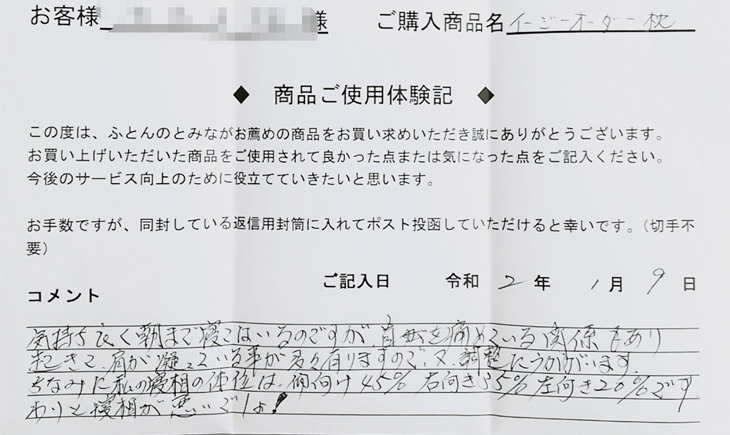 お客様 様 ご購入商品名 イージーオーダー枕
◆ 商品ご使用体験記 ◆
この度は、ふとんのとみながお薦めの商品をお買い求めいただき誠にありがとうございます。
お買い上げいただいた商品をご使用されて良かった点または気になった点をご記入ください。
今後のサービス向上のために役立てていきたいと思います。
お手数ですが、同封している返信用封筒に入れてポスト投函していただけると幸いです。（切手不
要）
ご記入日 令和 2 年 1 月 9 日
コメント
気持ち良く朝まで寝てはいるのですが、首を痛めている関係もあり
起きて、肩が凝っている事が多々有りますので、又、調整にうかがいます。
ちなみに私の寝相の体位は、仰向け45% 右向き35% 左向き20%です
わりと寝相が悪いでしょ!